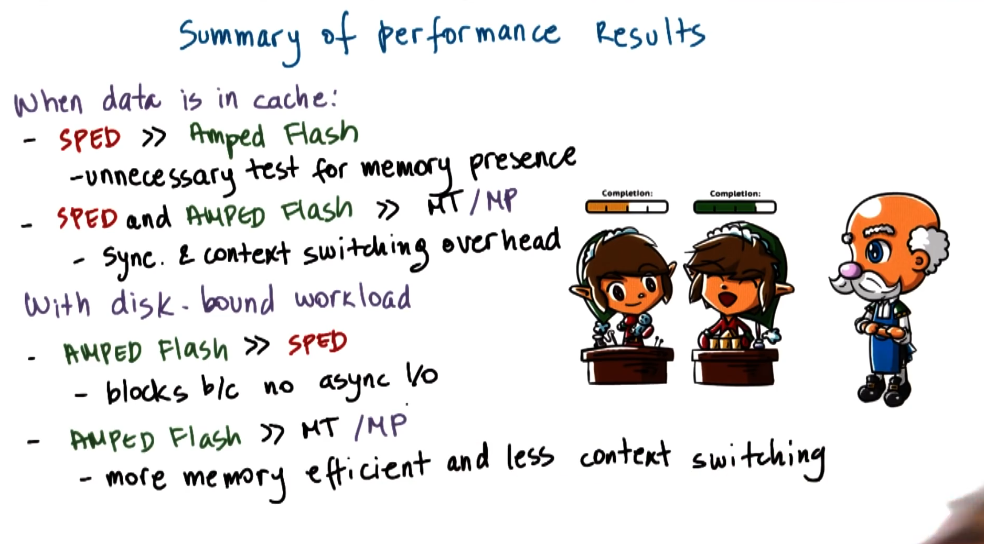 Summary of performance Results
When data is in cache:
- SPED >> Amped Flash
-unnecessary test for memory presence
- SPED and AMPED Flash >> MT/MP
- Sync. & context switching overhead
With disk-bound workload
- AMPED Flash >> SPED
- blocks b/c no async I/o
- AMPED Flash >> MT /MP
- more memory efficient and less context switching
Completion:
Completion: